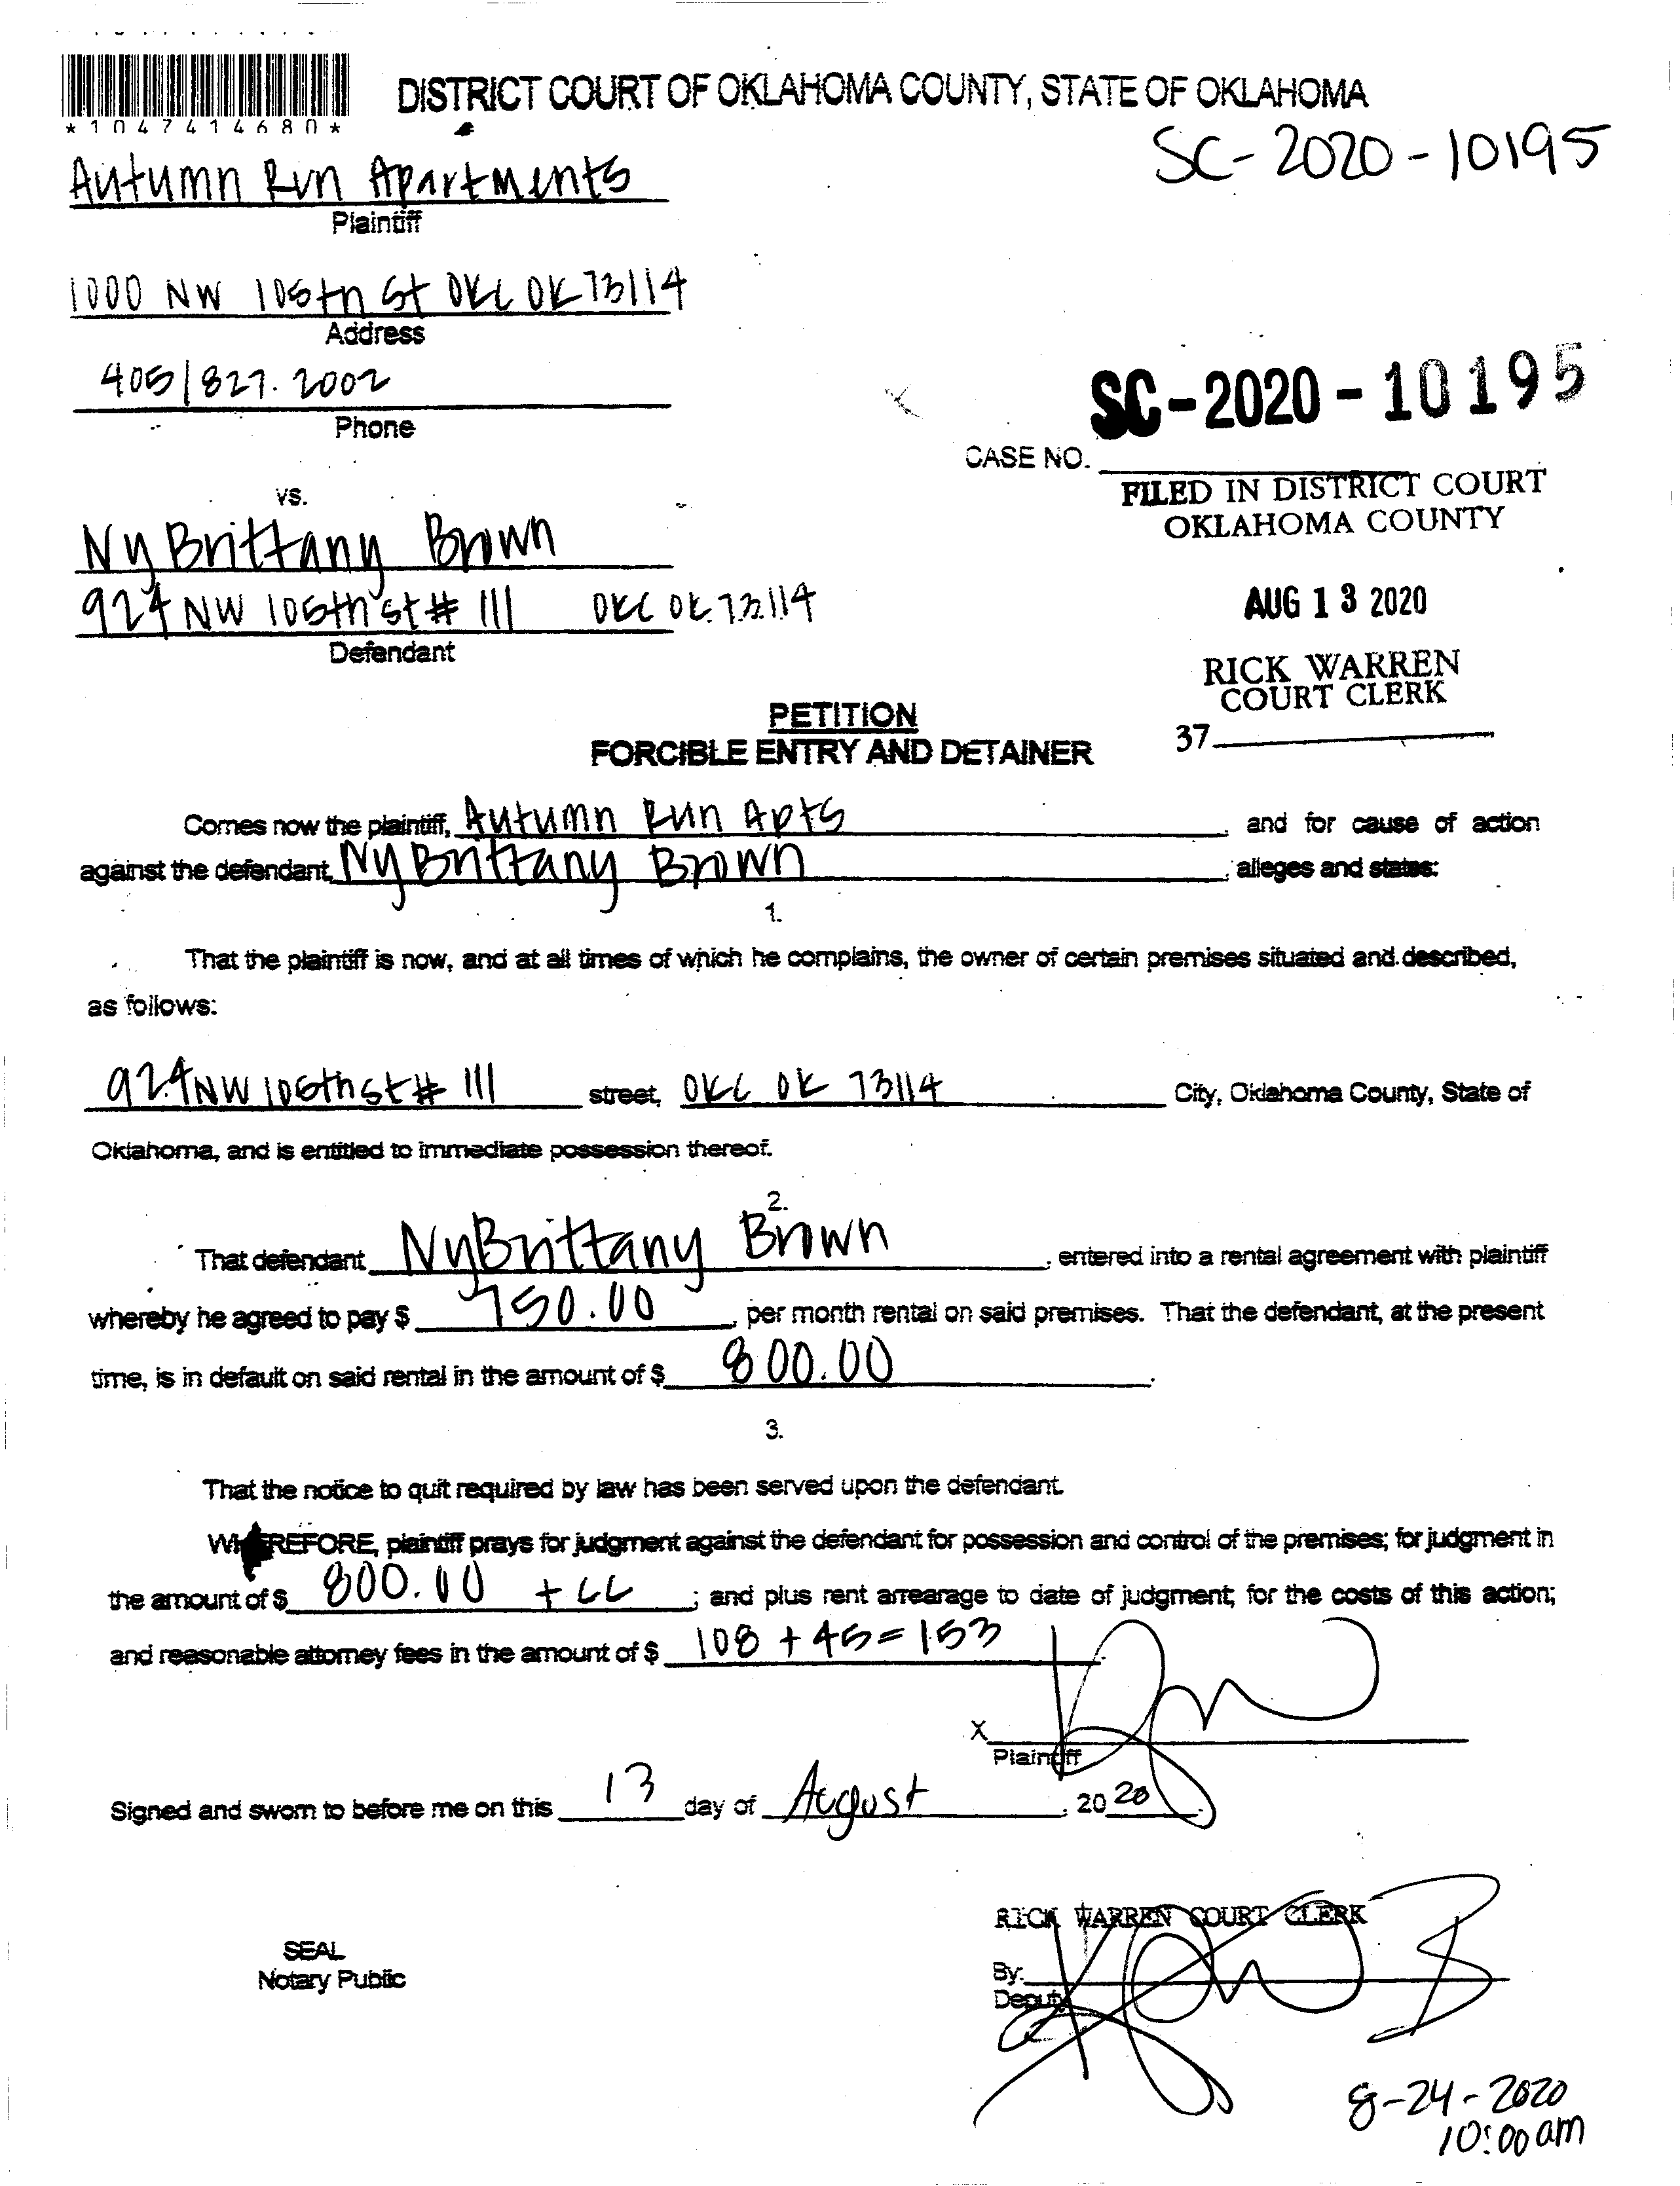 DISTRICT COURT OF OKLAHOMA COUNTY, STATE OF OKLAHOMA
*1047414680*
SC-2020-10195
Autumn Run Apartments
Plaintiff
1000 NW 105th St OKC OK 73114
Address
405/827.2002
Phone
SC-2020-10195
CASE NO.
FILED IN DISTRICT COURT
OKLAHOMA COUNTY
vs.
NyBrittany Brown
924 NW 106th st # 111 OKC OK 73114
Defendant
AUG 13 2020
RICK WARREN
COURT CLERK
37
PETITION
FORCIBLE ENTRY AND DETAINER
Comes now the plaintiff, Autumn Run Apts, and for cause of action
against the defendant, NyBrittany Brown, alleges and states:
1.
That the plaintiff is now, and at all times of which he complains, the owner of certain premises situated and described,
as follows:
924 NW 106th st # 111 street, OKC OK 73114 City, Oklahoma County, State of
Oklahoma, and is entitled to immediate possession thereof.
2.
That defendant NyBrittany Brown, entered into a rental agreement with plaintiff
whereby he agreed to pay $ 750.00, per month rental on said premises. That the defendant, at the present
time, is in default on said rental in the amount of $ 800.00.
3.
That the notice to quit required by law has been served upon the defendant.
WHEREFORE, plaintiff prays for judgment against the defendant for possession and control of the premises; for judgment in
the amount of $ 800.00 + CC; and plus rent arrearage to date of judgment; for the costs of this action;
and reasonable attorney fees in the amount of $ 108 + 45 = 153.
X
Plaintiff
Signed and sworn to before me on this 13 day of August, 2020.
RICK WARREN COURT CLERK
SEAL
Notary Public
By:
Deputy
8-24-2020
10:00 am